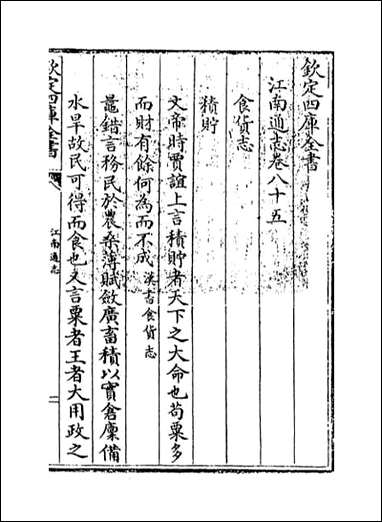 欽定四庫全書
江南通志卷八十五
食貨志
積貯
文帝時賈誼上言積貯者天下之大命也苟粟多
而財有餘何為而不成漢書食貨志
鼂錯言務民於農桑薄賦斂廣畜積以實倉廩備
水旱故民可得而食也又言粟者王者大用政之
欽定四庫全書
江南通志
一